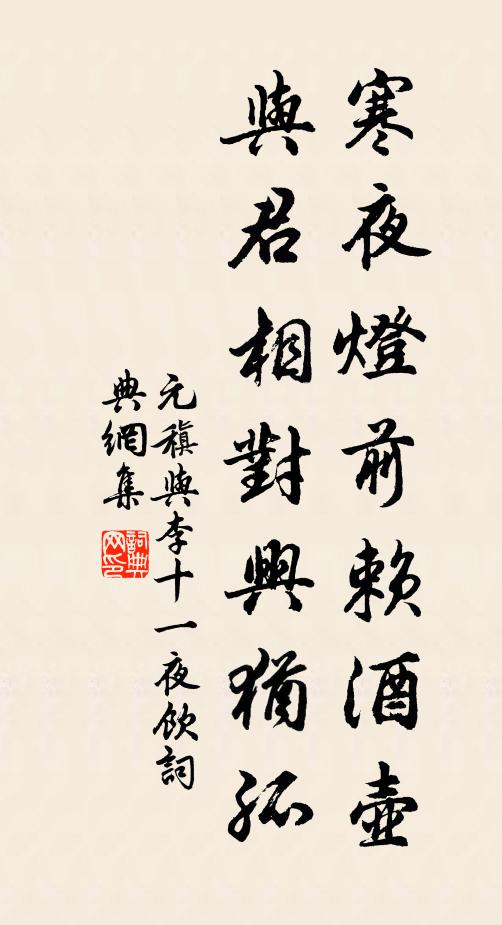 寒夜燈前賴酒壺
與君相對興猶孤
元稹與李十一夜飲詞
典網集
詞典網印